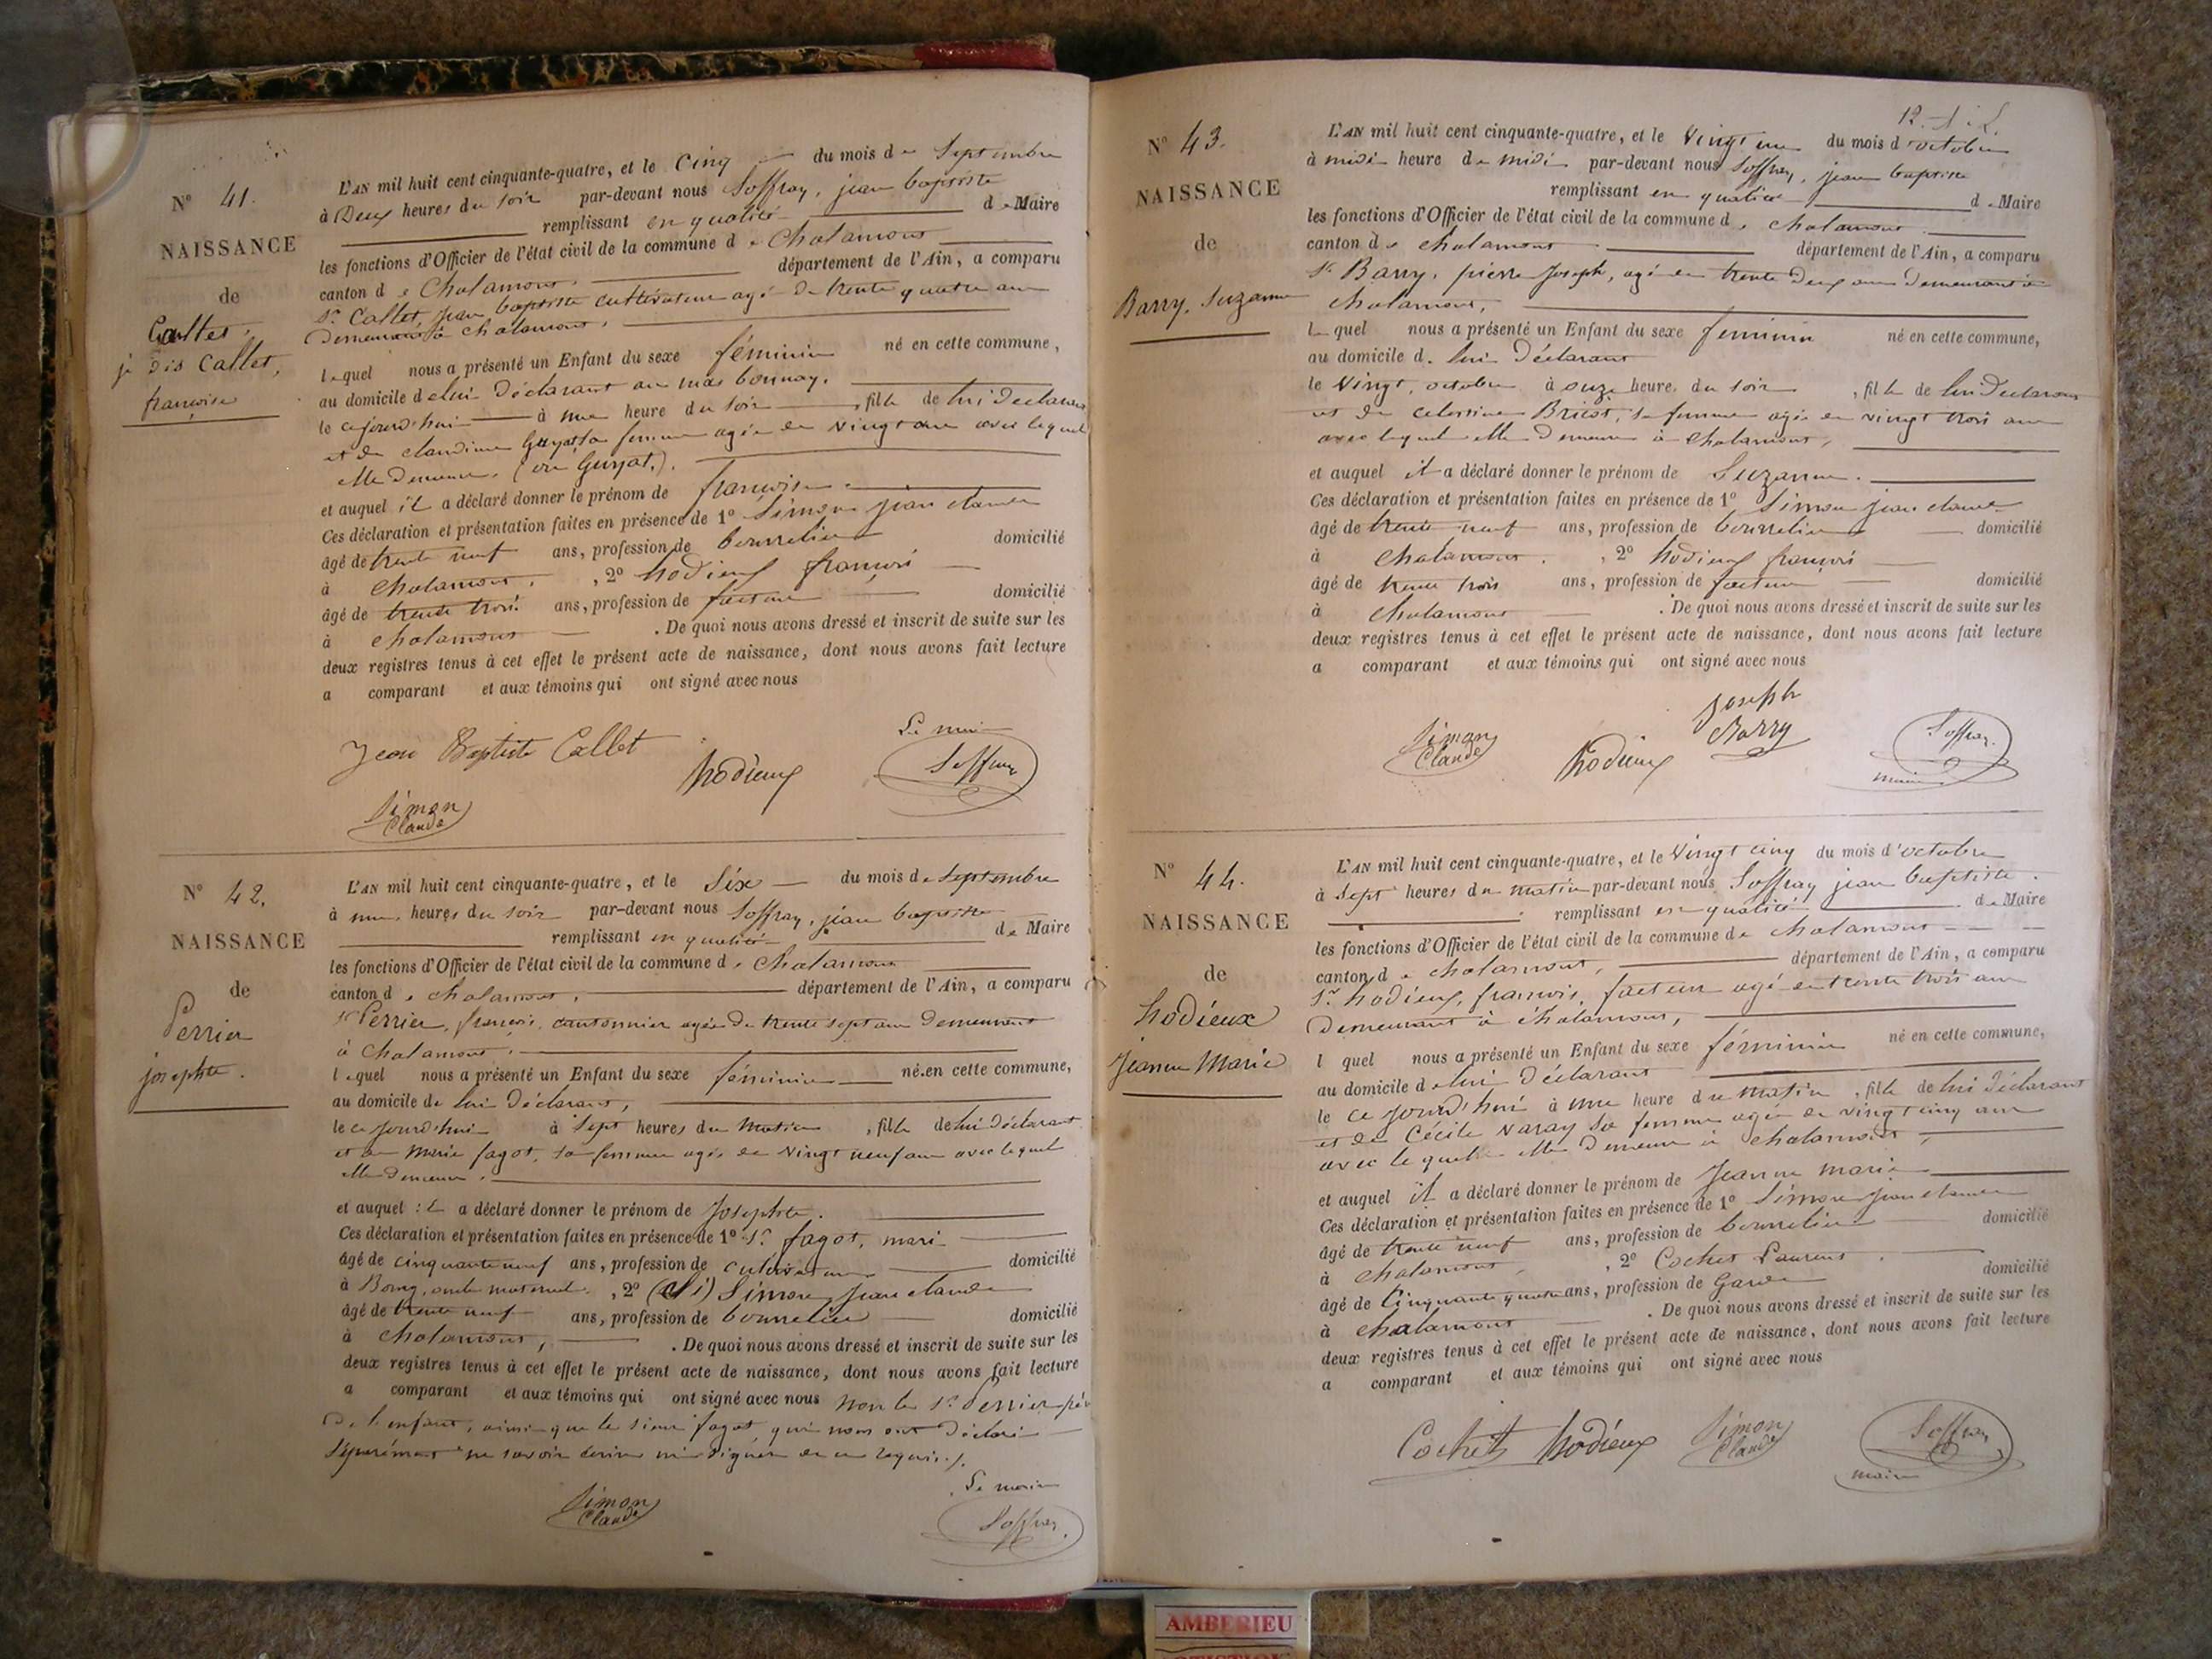 N° 41.
NAISSANCE
de
Caultes,
je dis Callet,
françoise
L'AN mil huit cent cinquante-quatre, et le Cinq du mois de Septembre
à Deux heures du soir par-devant nous Soffray, jean baptiste
remplissant en qualité de Maire
les fonctions d'Officier de l'état civil de la commune de Chalamont
canton de Chalamont. département de l'Ain, a comparu
Sr. Callet, jean baptiste cultivateur agé de trente quatre ans
demeurant à chalamont.
lequel nous a présenté un Enfant du sexe féminin né en cette commune,
au domicile de lui déclarant au mas bonnay.
le cejourd'hui à une heure du soir, fille de lui déclarant
et de claudine Guyat sa femme agée de vingt ans avec lequel
elle demeure. (ou Guyat.).
et auquel il a déclaré donner le prénom de françoise.
Ces déclaration et présentation faites en présence de 1° Simon jean claude
âgé de trente neuf ans, profession de bourrelier domicilié
à Chalamont, , 2° hodieux françois
âgé de trente trois ans, profession de facteur domicilié
à chalamont . De quoi nous avons dressé et inscrit de suite sur les
deux registres tenus à cet effet le présent acte de naissance, dont nous avons fait lecture
a comparant et aux témoins qui ont signé avec nous
Jean Baptiste Callet
hodieux
Le maire
Soffray
Simon
Claude
N° 42.
NAISSANCE
de
Perrier
josephte.
L'AN mil huit cent cinquante-quatre, et le Six du mois de Septembre
à une heures du soir par-devant nous Soffray, jean baptiste
remplissant en qualité de Maire
les fonctions d'Officier de l'état civil de la commune de Chalamont
canton de chalamont, département de l'Ain, a comparu
Sr Perrier, françois, cantonnier agé de trente sept ans demeurant
à Chalamont.
lequel nous a présenté un Enfant du sexe féminin né en cette commune,
au domicile de lui déclarant,
le ce jourd'hui à sept heures du matin, fille de lui déclarant
et de marie fagot, sa femme agée de vingt neuf ans avec lequel
elle demeure.
et auquel il a déclaré donner le prénom de Josephte.
Ces déclaration et présentation faites en présence de 1° Sr. fagot, mari
âgé de cinquante neuf ans, profession de cultivateur domicilié
à Bourg, oncle maternel. , 2° Simon, jean claude
âgé de trente neuf ans, profession de bourrelier domicilié
à Chalamont, . De quoi nous avons dressé et inscrit de suite sur les
deux registres tenus à cet effet le présent acte de naissance, dont nous avons fait lecture
a comparant et aux témoins qui ont signé avec nous non le Sr. Perrier père
de l'enfant, ainsi que le sieur fagot, qui nous ont déclaré
séparément ne savoir écrire ni signer de ce requis.
Simon
Claude
Le maire
Soffray
N° 43.
NAISSANCE
de
Barry. Suzanne
L'AN mil huit cent cinquante-quatre, et le Vingt un du mois d'octobre
à midi heure de midi par-devant nous Soffray, jean baptiste
remplissant en qualité de Maire
les fonctions d'Officier de l'état civil de la commune de chalamont.
canton de chalamont département de l'Ain, a comparu
Sr Barry, pierre Joseph, agé de trente deux ans demeurant à
chalamont,
lequel nous a présenté un Enfant du sexe féminin né en cette commune,
au domicile de lui déclarant
le Vingt, octobre à onze heure du soir, fille de lui déclarant
et de celestine Bricot, sa femme agée de vingt trois ans
avec lequel elle demeure à chalamont,
et auquel il a déclaré donner le prénom de Suzanne.
Ces déclaration et présentation faites en présence de 1° Simon jean claude
âgé de trente neuf ans, profession de bourrelier domicilié
à chalamont. , 2° hodieux françois
âgé de trente trois ans, profession de facteur domicilié
à chalamont . De quoi nous avons dressé et inscrit de suite sur les
deux registres tenus à cet effet le présent acte de naissance, dont nous avons fait lecture
a comparant et aux témoins qui ont signé avec nous
Simon
Claude
hodieux
Joseph
Barry
Soffray.
maire
N° 44.
NAISSANCE
de
hodieux
Jeanne Marie
L'AN mil huit cent cinquante-quatre, et le Vingt cinq du mois d'octobre
à Sept heures du matin par-devant nous Soffray jean baptiste.
remplissant en qualité de Maire
les fonctions d'Officier de l'état civil de la commune de chalamont
canton de chalamont, département de l'Ain, a comparu
Sr hodieux, françois, facteur agé de trente trois ans
demeurant à chalamont,
l quel nous a présenté un Enfant du sexe féminin né en cette commune,
au domicile de lui déclarant
le ce jourd'hui à une heure du matin, fille de lui déclarant
et de Cécile Naray sa femme agée de vingt cinq ans
avec lequelle elle demeure à chalamont,
et auquel il a déclaré donner le prénom de Jeanne marie
Ces déclaration et présentation faites en présence de 1° Simon jean claude
âgé de trente neuf ans, profession de bourrelier domicilié
à Chalamont, , 2° Cochet Laurent.
âgé de Cinquante quatre ans, profession de Garde domicilié
à chalamont . De quoi nous avons dressé et inscrit de suite sur les
deux registres tenus à cet effet le présent acte de naissance, dont nous avons fait lecture
a comparant et aux témoins qui ont signé avec nous
Cochet hodieux
Simon
Claude
Soffray
maire
AMBERIEU